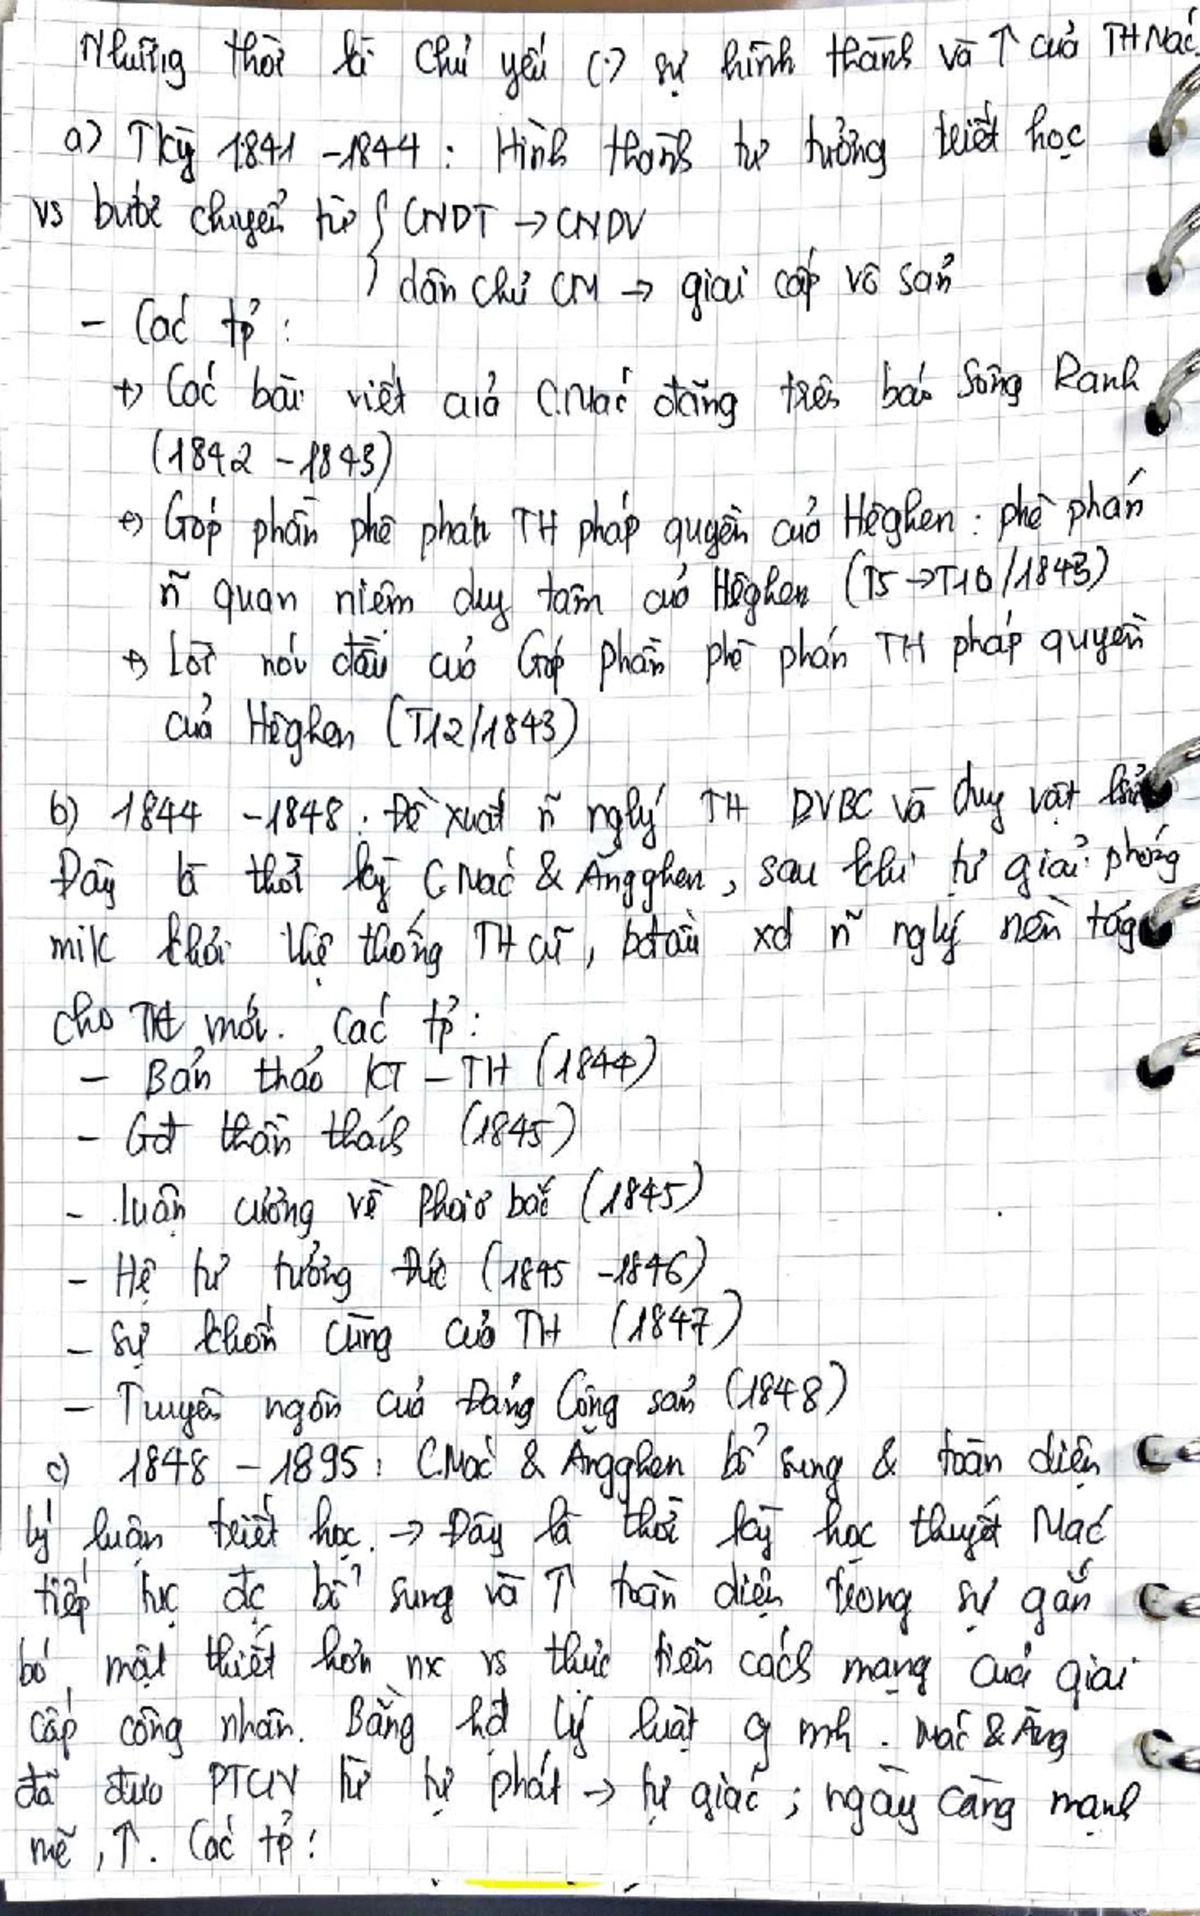 Những thời kì chủ yếu (.) sự hình thành và ↑ của TH Mác.
a) Tkỳ 1841 - 1844 : Hình thành tư tưởng triết học
vs bước chuyển từ { CNDT → CNDV
dân chủ CM → giai cấp vô sản
- Các tp :
+) Các bài viết của C.Mác đăng trên báo Sông Ranh
(1842 - 1843)
+) Góp phần phê phán TH pháp quyền của Hêghen : phê phán
ñ quan niệm duy tâm của Hêghen (T5 → T10/1843)
+) Lời nói đầu của Góp phần phê phán TH pháp quyền
của Hêghen (T12/1843)
b) 1844 - 1848 : Đề xuất ñ nglý TH DVBC và duy vật
Đây là thời kỳ C.Mác & Ăngghen, sau khi tự giải phóng
mik khỏi hệ thống TH cũ, bđầu xd ñ nglý nền tảng
cho TH mới. Các tp :
- Bản thảo KT - TH (1844)
- Gđ thần thánh (1845)
- Luận cương về Phoiơbắc (1845)
- Hệ tư tưởng Đức (1845 - 1846)
- Sự khốn cùng của TH (1847)
- Tuyên ngôn của Đảng Cộng sản (1848)
c) 1848 - 1895 : C.Mác & Ăngghen bổ sung & toàn diện
lý luận triết học. → Đây là thời kỳ học thuyết Mác
tiếp tục đc bổ sung và ↑ toàn diện trong sự gắn
bó mật thiết hơn nx vs thực tiễn cách mạng của giai
cấp công nhân. Bằng hđ lý luật mh. Mác & Ăng
đã đưa PTCN từ tự phát → tự giác ; ngày càng mạnh
mẽ, ↑. Các tp :